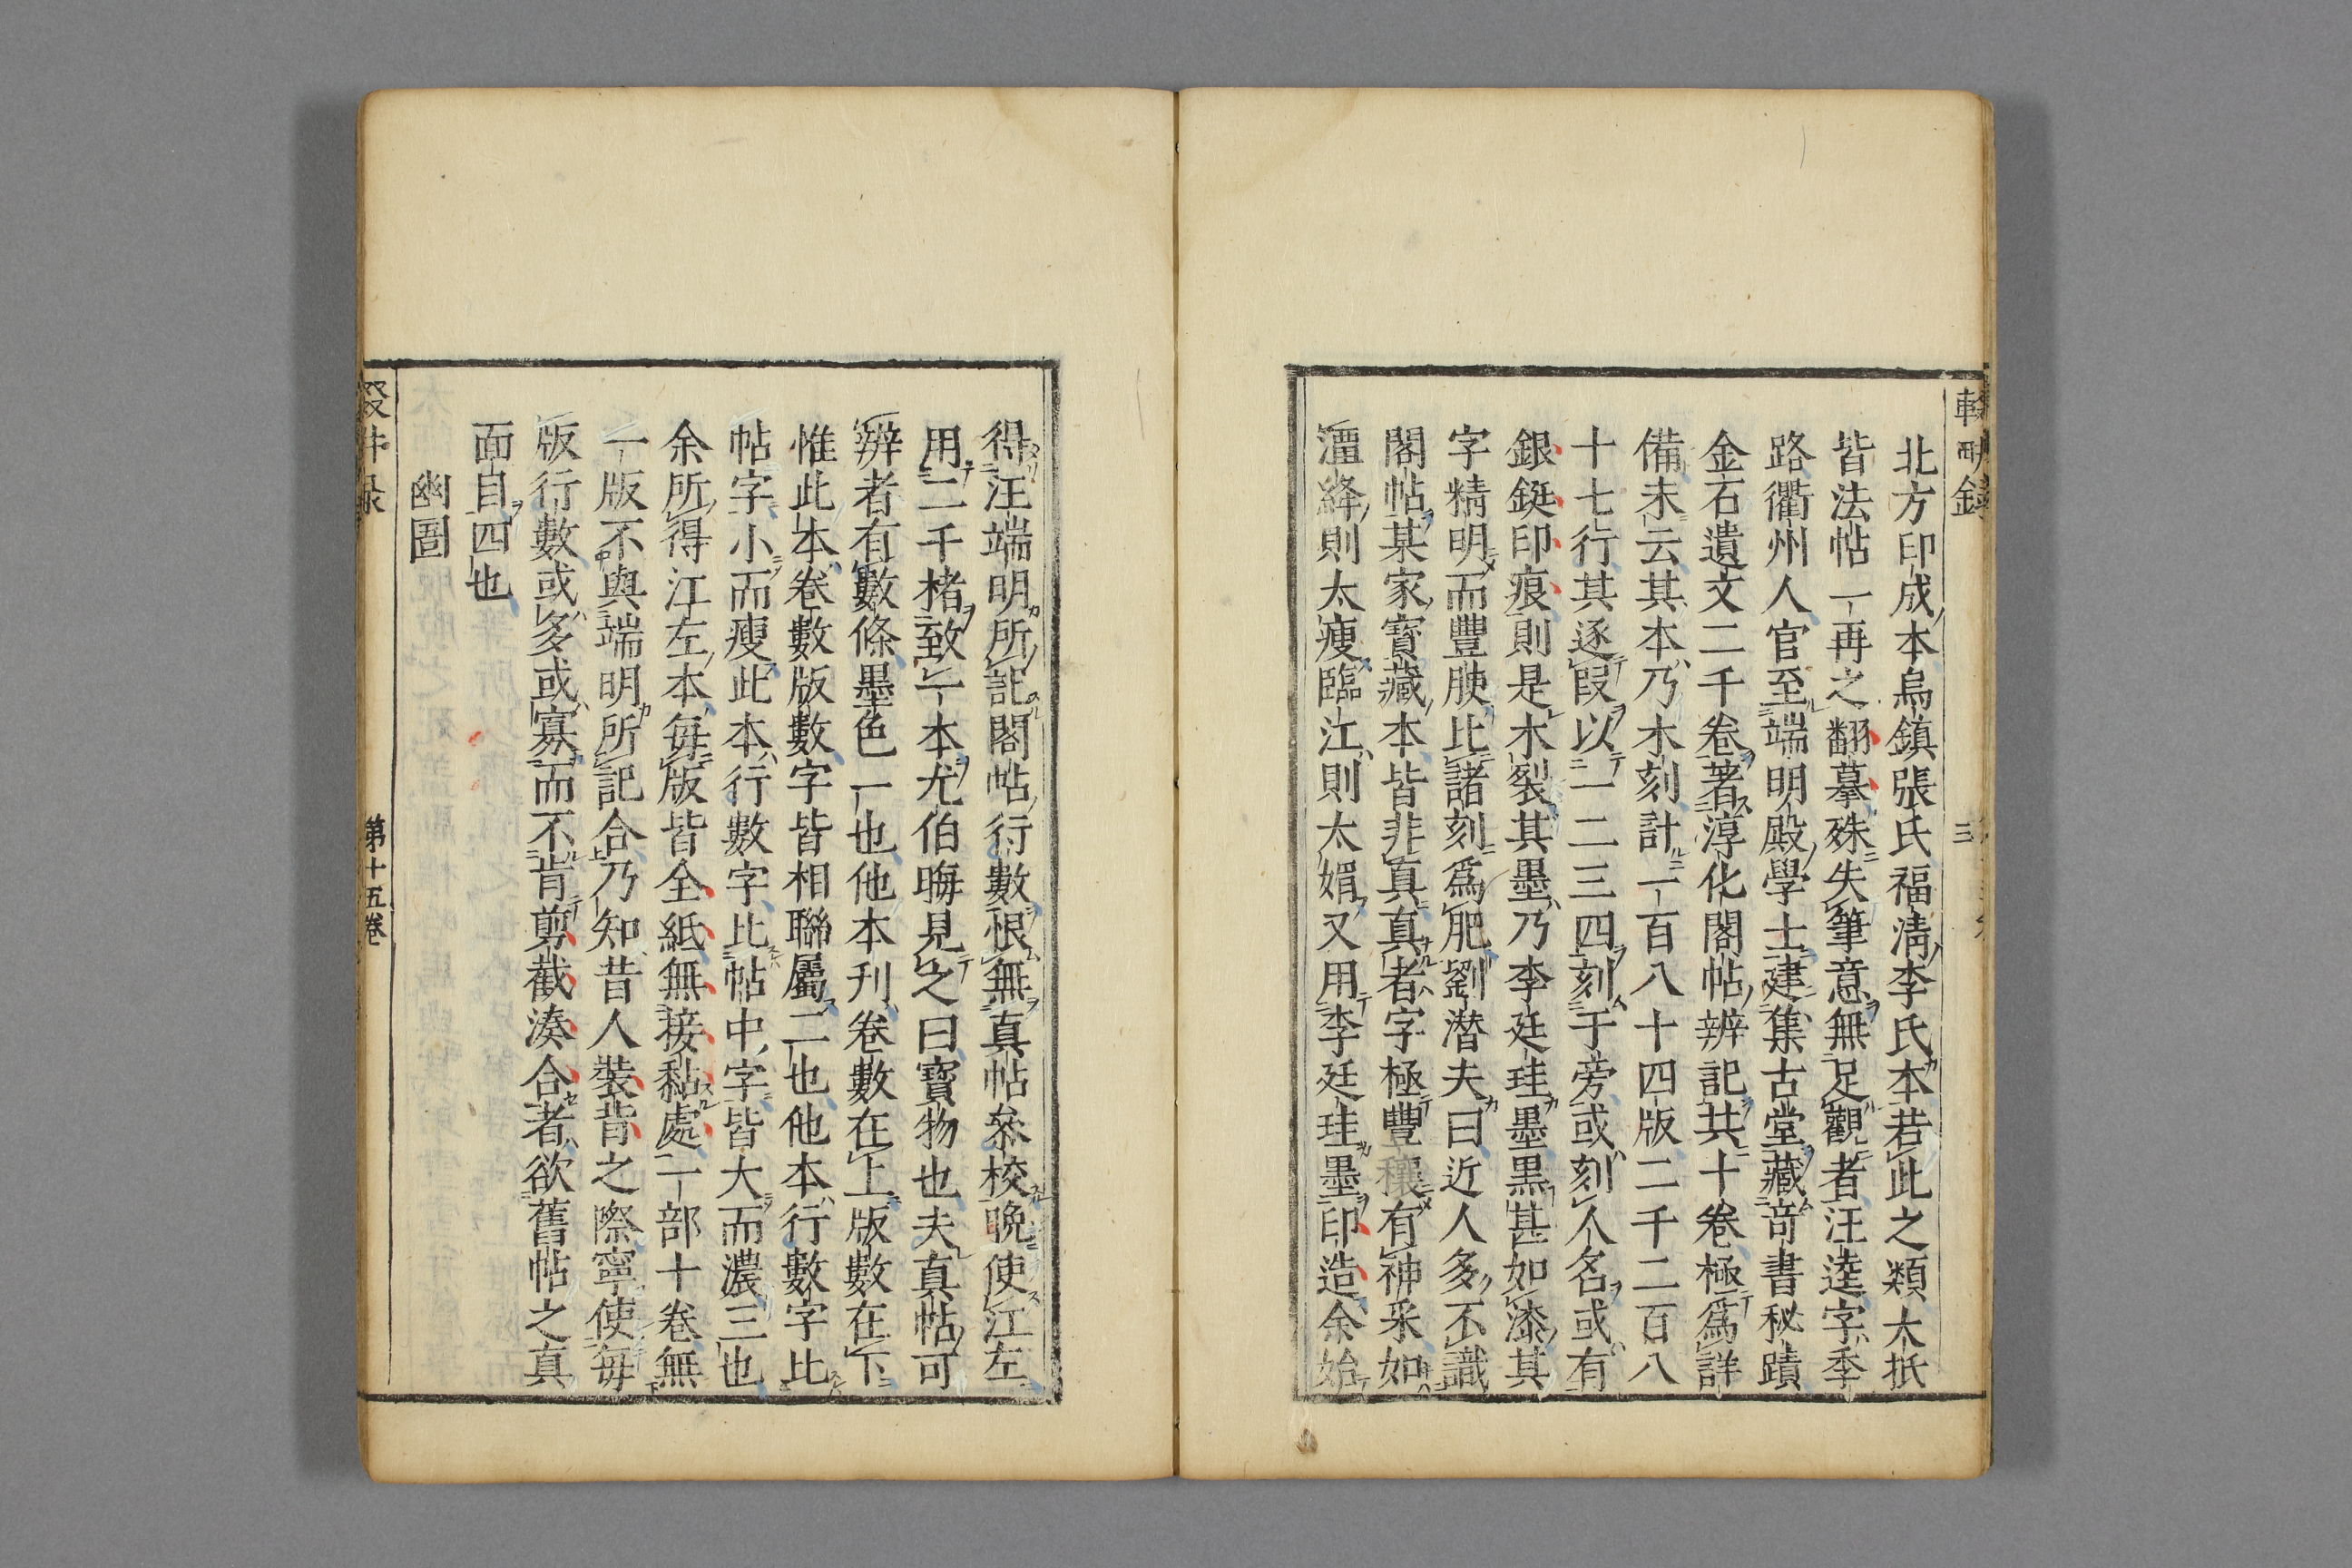 北方印成本烏鎮張氏福淸李氏本若此之類大抵
皆法帖一再之翻摹殊失筆意無足觀者汪逵字季
路衢州人官至端明殿學士建集古堂藏竒書秘蹟
金石遺文二千卷著淳化閣帖辨記共十卷極爲詳
備未云其本乃木刻計一百八十四版二千二百八
十七行其逐叚以一二三四刻于旁或刻人名或有
銀鋌印痕則是木裂其墨乃李廷珪墨黒甚如漆其
字精明而豐腴比諸刻爲肥劉潜夫曰近人多不識
閣帖某家寳藏本皆非真真者字極豐穰有神采如
潭絳則太瘦臨江則太媚又用李廷珪墨印造余始
得汪端明所記閣帖行數恨無真帖叅校晩使江左
用二千楮致一本尤伯晦見之曰寳物也夫真帖可
辨者有數條墨色一也他本刋卷數在上版數在下
惟此本卷數版數字皆相聯屬二也他本行數字比
帖字小而瘦此本行數字比帖中字皆大而濃三也
余所得江左本每版皆全紙無接黏處一部十卷無
一版不與端明所記合乃知昔人裝背之際寧使每
版行數或多或寡而不肯剪截湊合者欲舊帖之真
面目四也
豳圖
第十五卷